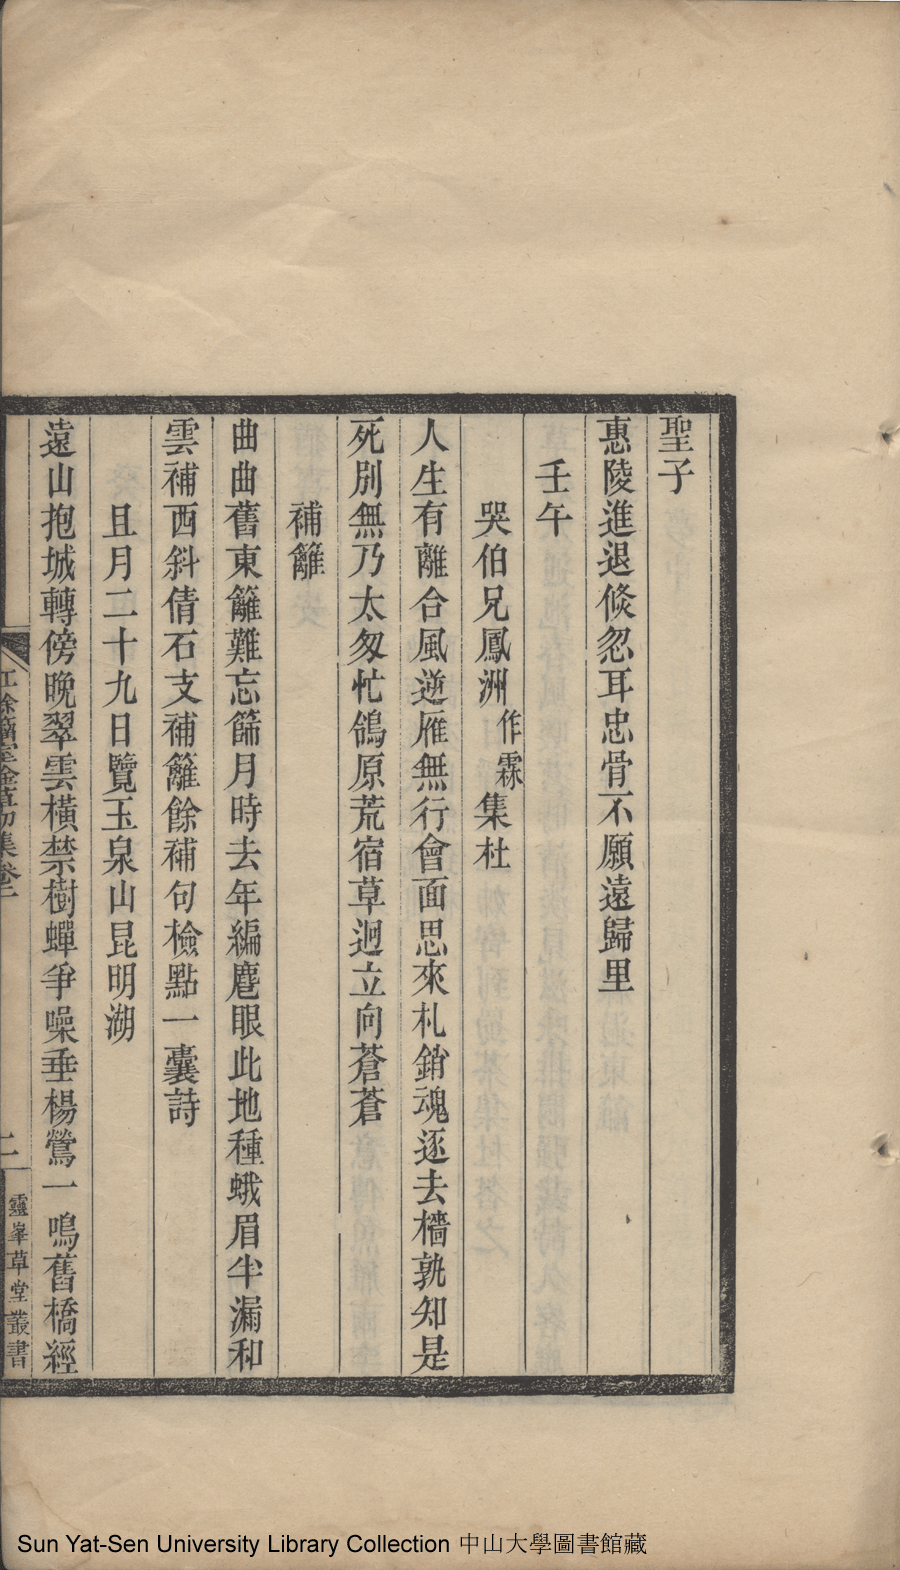 聖子
惠陵進退倏忽耳忠骨不願遠歸里
壬午
哭伯兄鳳洲作霖集杜
人生有離合風逆雁無行會面思來札銷魂逐去檣孰知是
死別無乃太匆忙鴒原荒宿草迥立向蒼蒼
補籬
曲曲舊東籬難忘篩月時去年編麂眼此地種蛾眉半漏和
雲補西斜倩石支補籬餘補句檢點一囊詩
且月二十九日覽玉泉山昆明湖
遠山抱城轉傍晚翠雲橫禁樹蟬爭噪垂楊鶯一鳴舊橋經
集卷二
二
靈峯草堂叢書
Sun Yat-Sen University Library Collection 中山大學圖書館藏